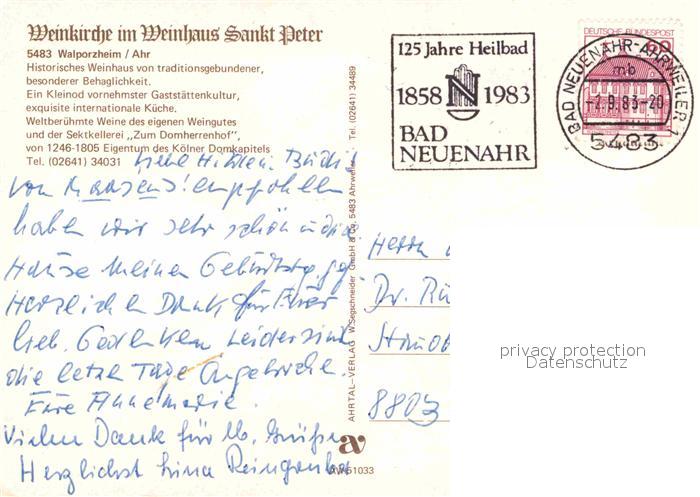 Weinkirche im Weinhaus Sankt Peter
5483 Walporzheim / Ahr
Historisches Weinhaus von traditionsgebundener,
besonderer Behaglichkeit.
Ein Kleinod vornehmster Gaststättenkultur,
exquisite internationale Küche.
Weltberühmte Weine des eigenen Weingutes
und der Sektkellerei „Zum Domherrenhof",
von 1246-1805 Eigentum des Kölner Domkapitels
Tel. (02641) 34031
Liebe
von empfohlen
haben wir sehr schön
Hause meinen Geburtstag
Herzlichen Dank für Euer
lieb. Gedenken Leider sind
die letzten Tage angebrochen.
Eure Annemarie.
Vielen Dank für lb. Grüße
Herzlichst
125 Jahre Heilbad
1858 1983
BAD
NEUENAHR
DEUTSCHE BUNDESPOST
60
BAD NEUENAHR-AHRWEILER 1
mb
-7.9.83-20
5483
ARTAL-VERLAG W. Segschneider GmbH & Co, 5483 Ahrweiler Tel. (02641) 34489
Herrn
Dr.
8803
privacy protection
Datenschutz
av
51033